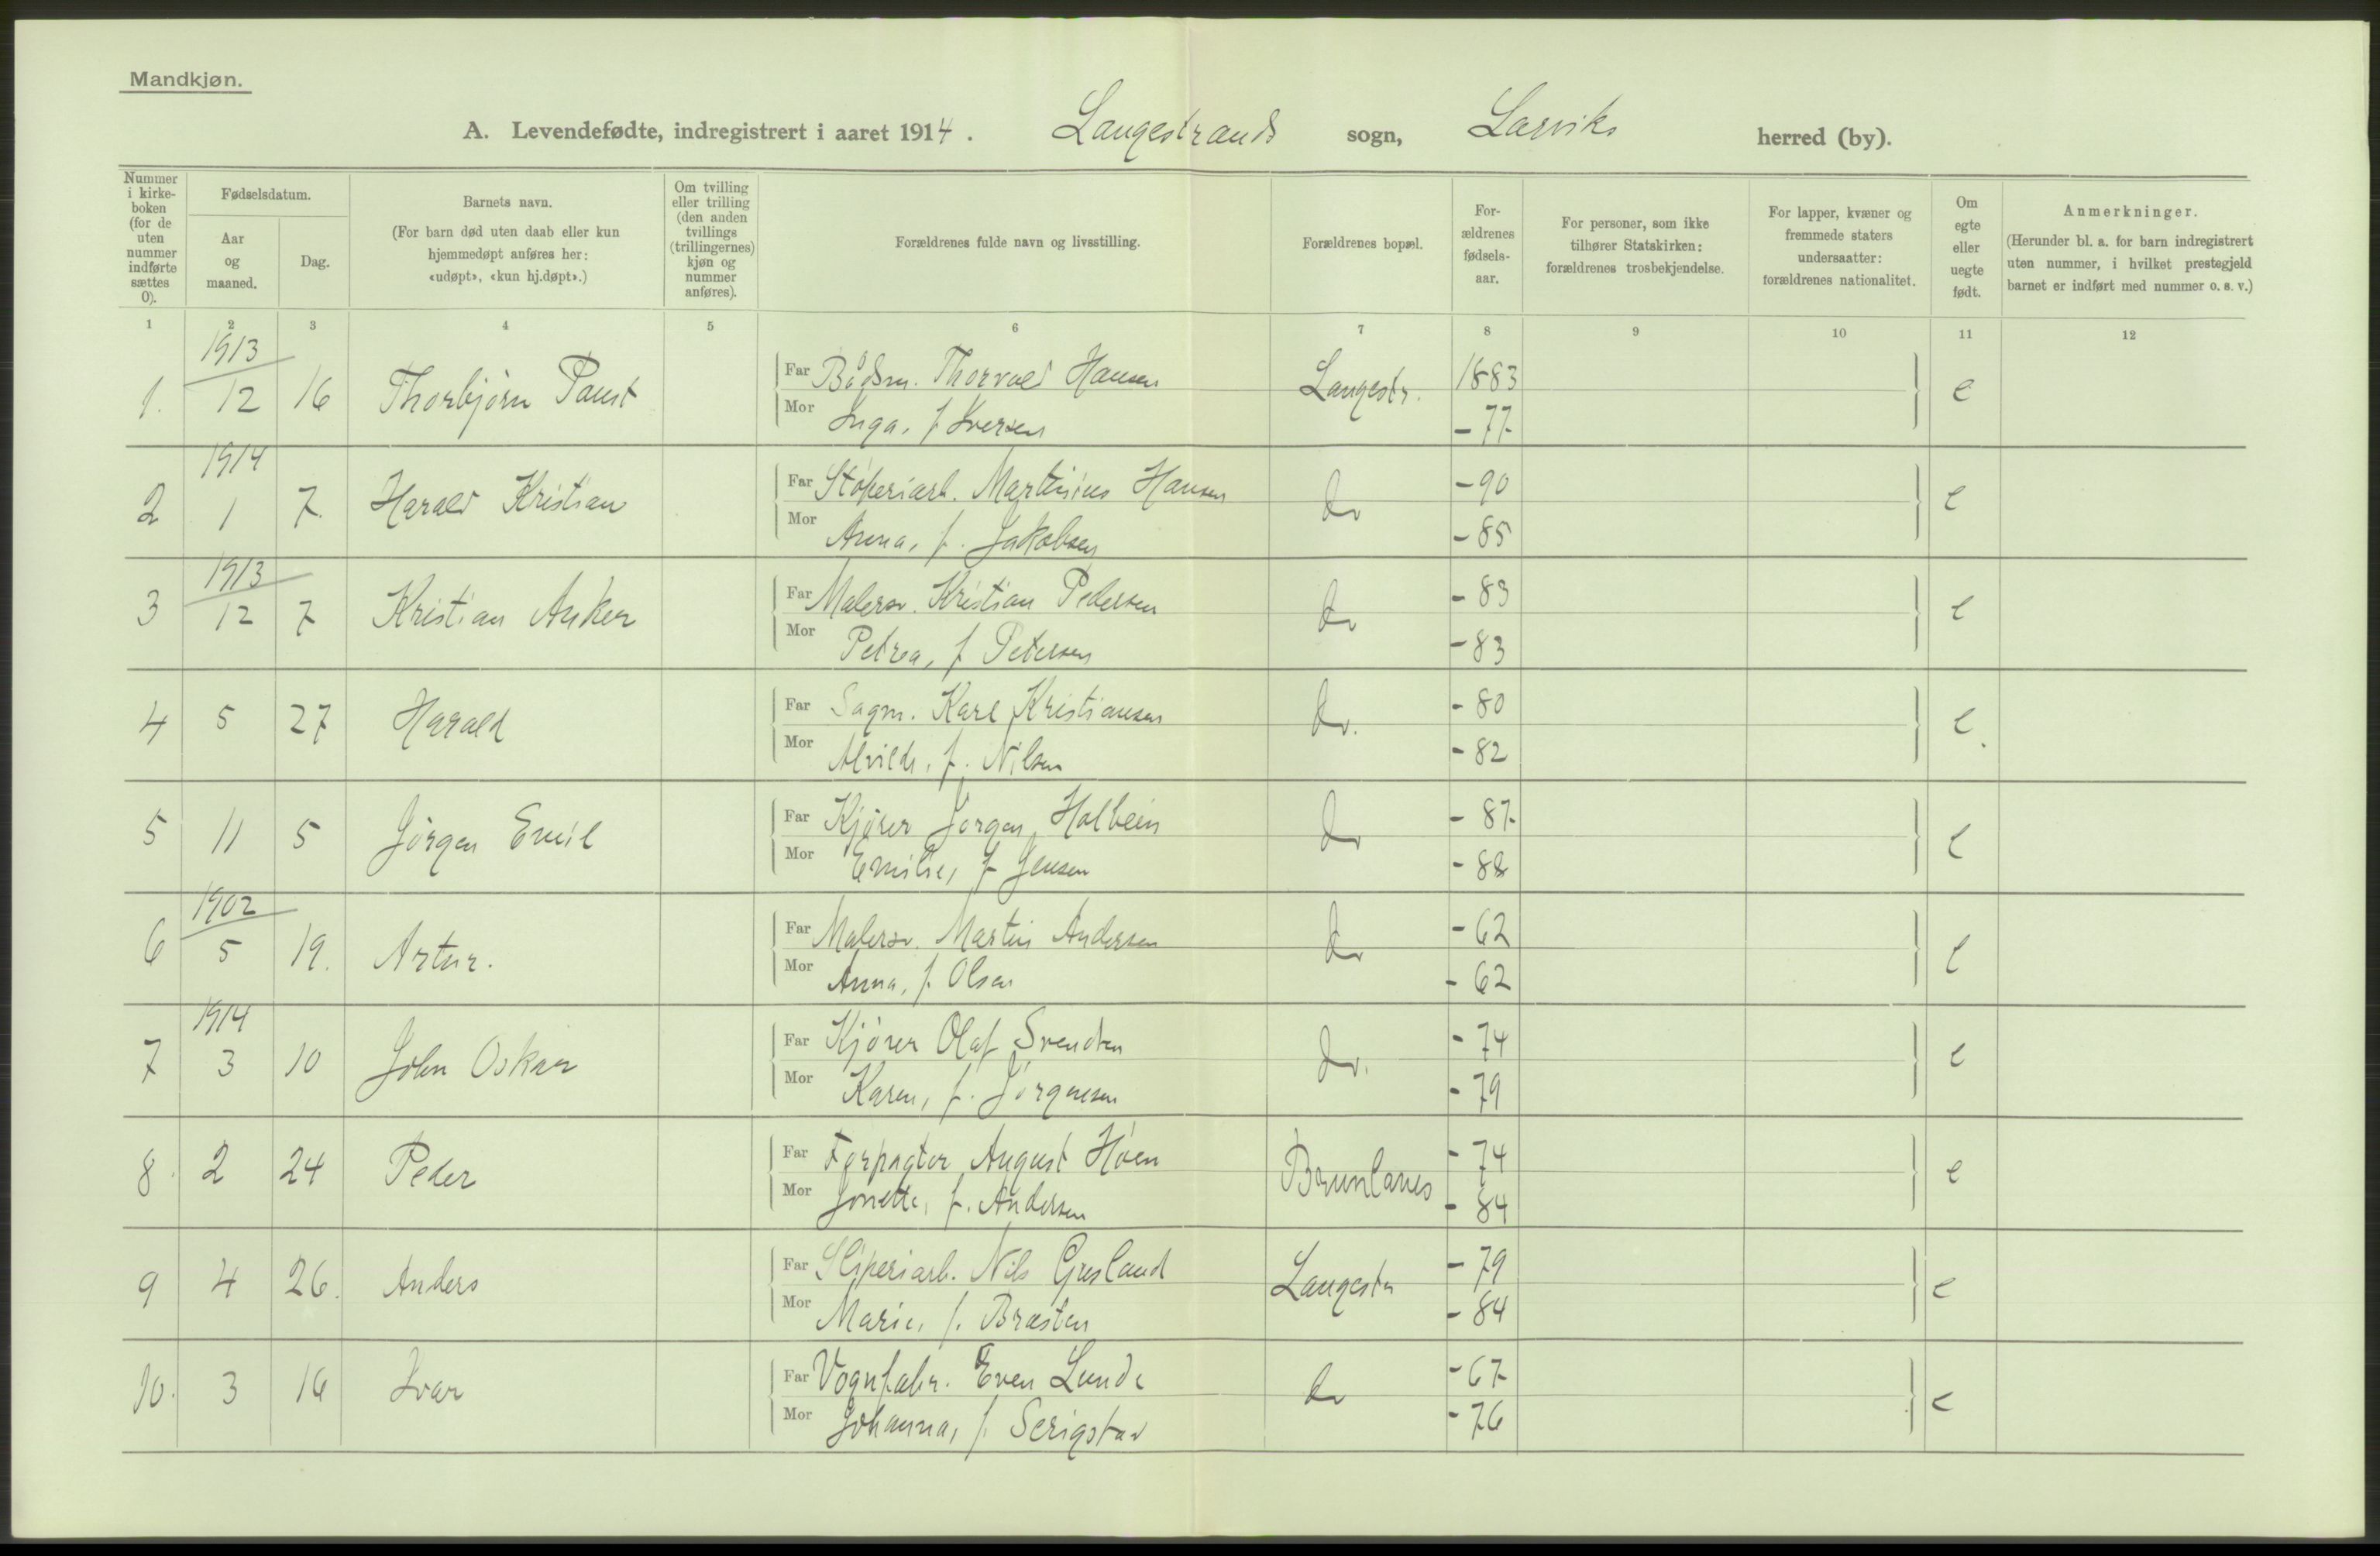 Mandkjøn.
A. Levendefødte, indregistrert i aaret 1914. Langestrands sogn, Larviks herred (by).
Nummer i kirke-boken (for de uten nummer indførte sættes 0).
Fødselsdatum.
Aar og maaned.
Dag.
Barnets navn.
(For barn død uten daab eller kun hjemmedøpt anføres her: «udøpt», «kun hj.døpt».)
Om tvilling eller trilling (den anden tvillings (trillingernes) kjøn og nummer anføres).
Forældrenes fulde navn og livsstilling.
Forældrenes bopæl.
For-ældrenes fødsels-aar.
For personer, som ikke tilhører Statskirken: forældrenes trosbekjendelse.
For lapper, kvæner og fremmede staters undersaatter: forældrenes nationalitet.
Om egte eller uegte født.
Anmerkninger.
(Herunder bl. a. for barn indregistrert uten nummer, i hvilket prestegjeld barnet er indført med nummer o. s. v.)
1 2 3 4 5 6 7 8 9 10 11 12
1913
1. 12 16 Thorbjørn Paust Far Bådsm. Thorvald Hansen Langestr. 1883 e
Mor Inga, f Iversen - 77
1914
2 1 7 Harald Kristian Far Martinius Hansen do - 90 e
Mor Anna, f. Jakobsen - 85
1913
3 12 7 Kristian Anker Far Malersv. Kristian Pedersen do - 83 e
Mor Petrea, f Petersen - 83
4 5 27 Harald Far Sagm. Karl Kristiansen do. - 80 e.
Mor Alvilde, f. Nilsen - 82
5 11 5 Jörgen Emil Far Kjører Jörgen Holbein do - 87 e
Mor Emilie, f Jensen - 88
1902
6 5 19. Artur. Far Malersv. Martin Andersen do - 62 e
Mor Anna, f. Olsen - 62
1914
7 3 10 John Oskar Far Kjörer Olaf Svendsen do. - 74 e
Mor Karen, f. Jörgensen - 79
8. 2 24 Peder Far Forpagter August Höen Brunlanes - 74 e
Mor Jonette, f. Andersen - 84
9 4 26. Anders Far Sliperiarb. Nils Gresland Langestr - 79 e
Mor Marie, f. Bræsten - 84
10. 3 16 Ivar Far Vognfabr. Even Lunde do - 67 e
Mor Johanna, f. Serigstad - 76